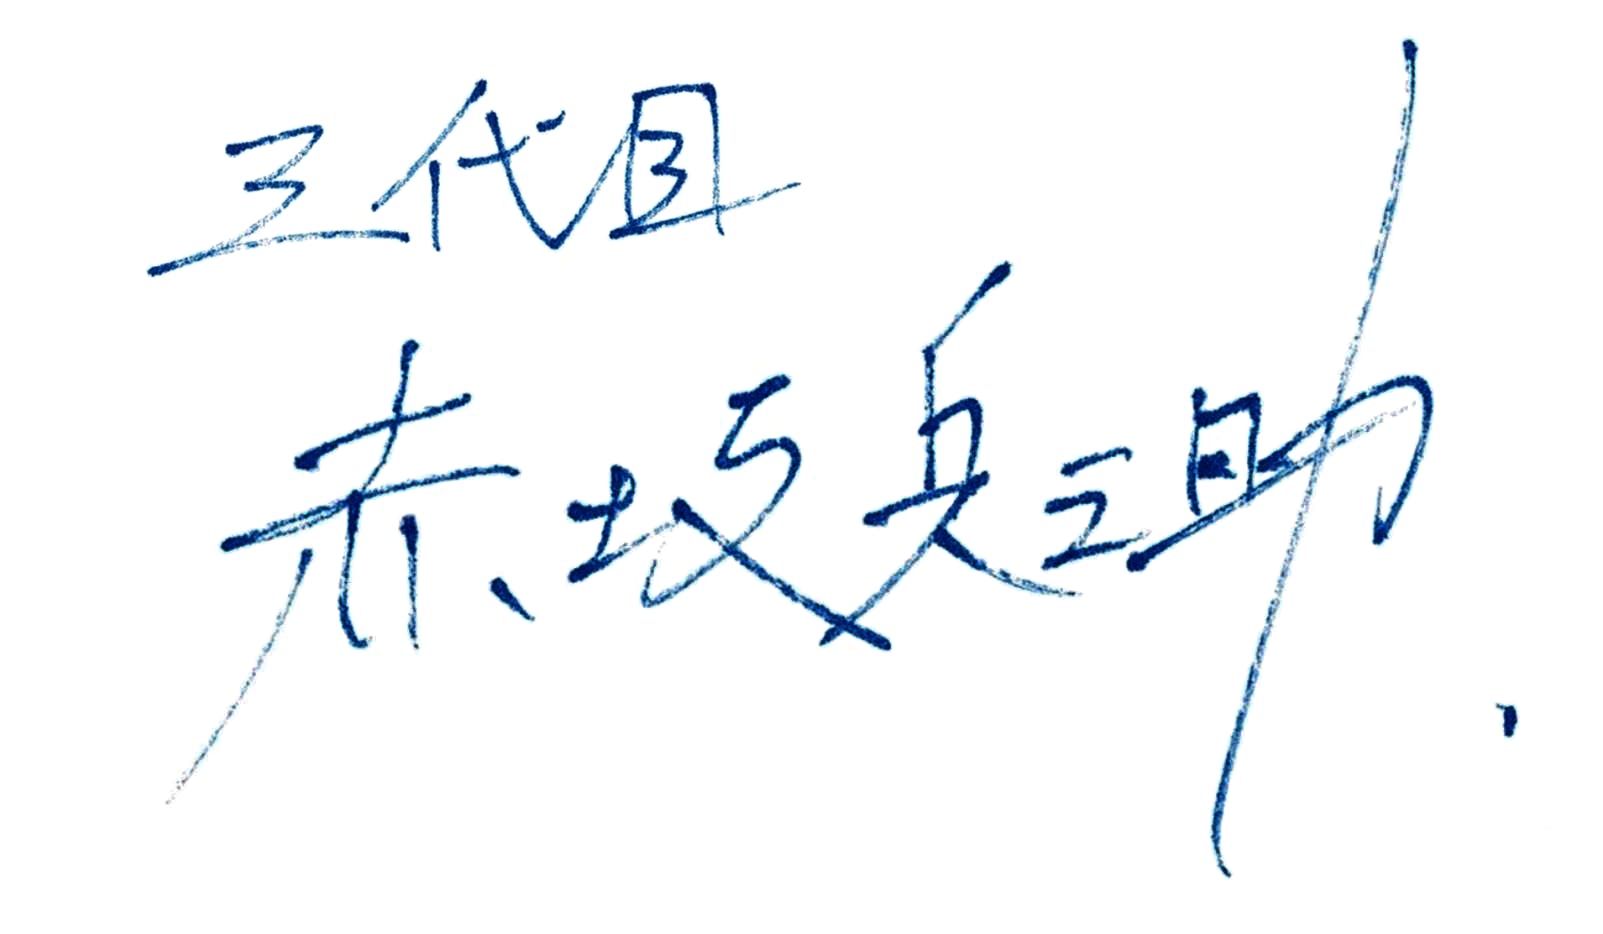 三代目
赤坂兵之助